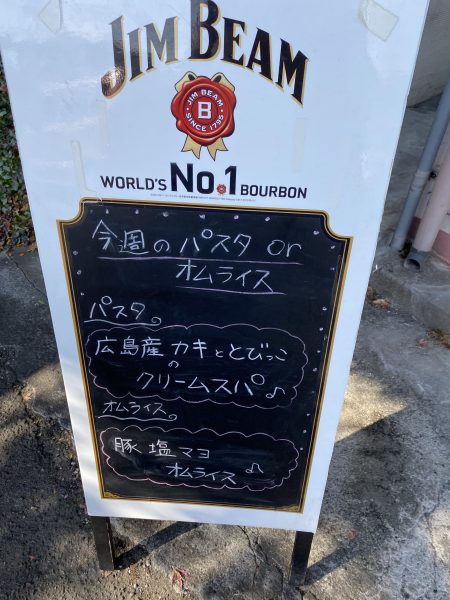 JIM BEAM
JIM BEAM
B
SINCE 1795
WORLD'S No.1 BOURBON
今週のパスタ or
オムライス
パスタ
広島産 カキととびっこ
の
クリームスパ♪
オムライス
豚 塩 マヨ
オムライス♪